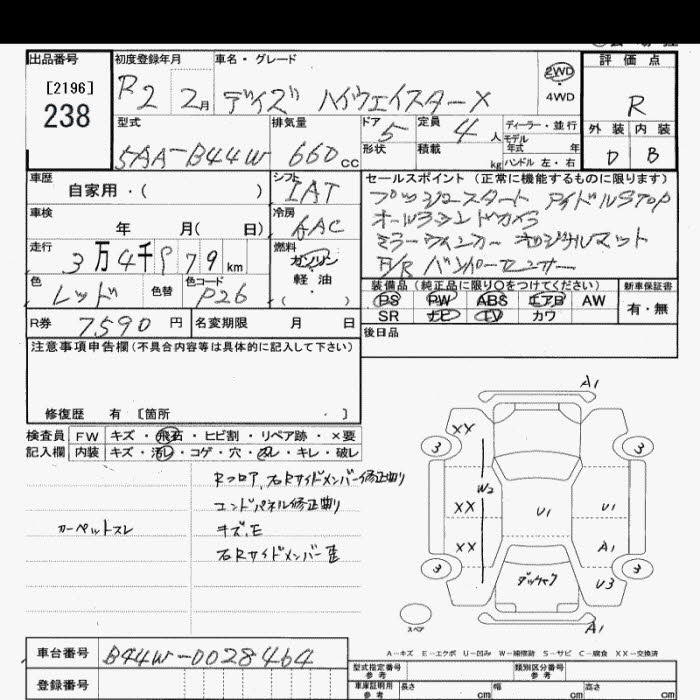 出品番号 初度登録年月 車名・グレード 評価点
[2196]
238
R2 2月 デイズ ハイウェイスターX 2WD・4WD R
型式 排気量 ドア 定員 ディーラー・並行 外装 内装
5AA-B44W 660cc 5 4人 モデル年式 年 D B
形状 積載 kg ハンドル 左・右
車歴 シフト セールスポイント (正常に機能するものに限ります)
自家用・( ) IAT プッシュスタート アイドルSTOP
車検 冷房 オールラウンドカメラ
年 月( 日) AAC ミラーウインカー オリジナルマット
走行 燃料 F/R バンパーセンサー
3万4千979km ガソリン・軽油・( )
色 色替 色コード 装備品(純正品に限り○をつけてください) 新車保証書
レッド P26 PS PW ABS エアB AW 有・無
R券 7590円 名変期限 月 日 SR ナビ TV カワ
注意事項申告欄(不具合内容等は具体的に記入して下さい) 後日品
修復歴 有 [箇所 ]
検査員 FW キズ・飛石・ヒビ割・リペア跡・×要
記入欄 内装 キズ・汚レ・コゲ・穴・スレ・キレ・破レ
Rフロア、右Rサイドメンバー修正曲り
エンドパネル修正曲り
カーペットスレ キズ、E
右Rサイドメンバー
A1
3 XX 3
W2
XX U1 U1
XX A1
3 U3 3
スペア A1
A-キズ E-エクボ U-凹み W-補修跡 S-サビ C-腐食 XX-交換済
車台番号 B44W-0028464
登録番号
型式指定番号 参考 類別区分番号 参考
車庫証明用 参考 長さ cm 幅 cm 高さ cm